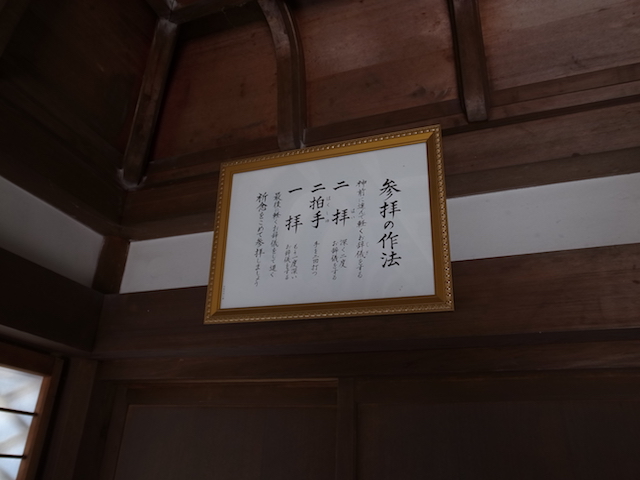 参拝の作法
神前に進み軽くお辞儀をする
二拝
深く二度
お辞儀をする
二拍手
手を二回打つ
一拝
もう一度深い
お辞儀をする
最後に軽くお辞儀をして退く
祈念をこめて参拝しましょう